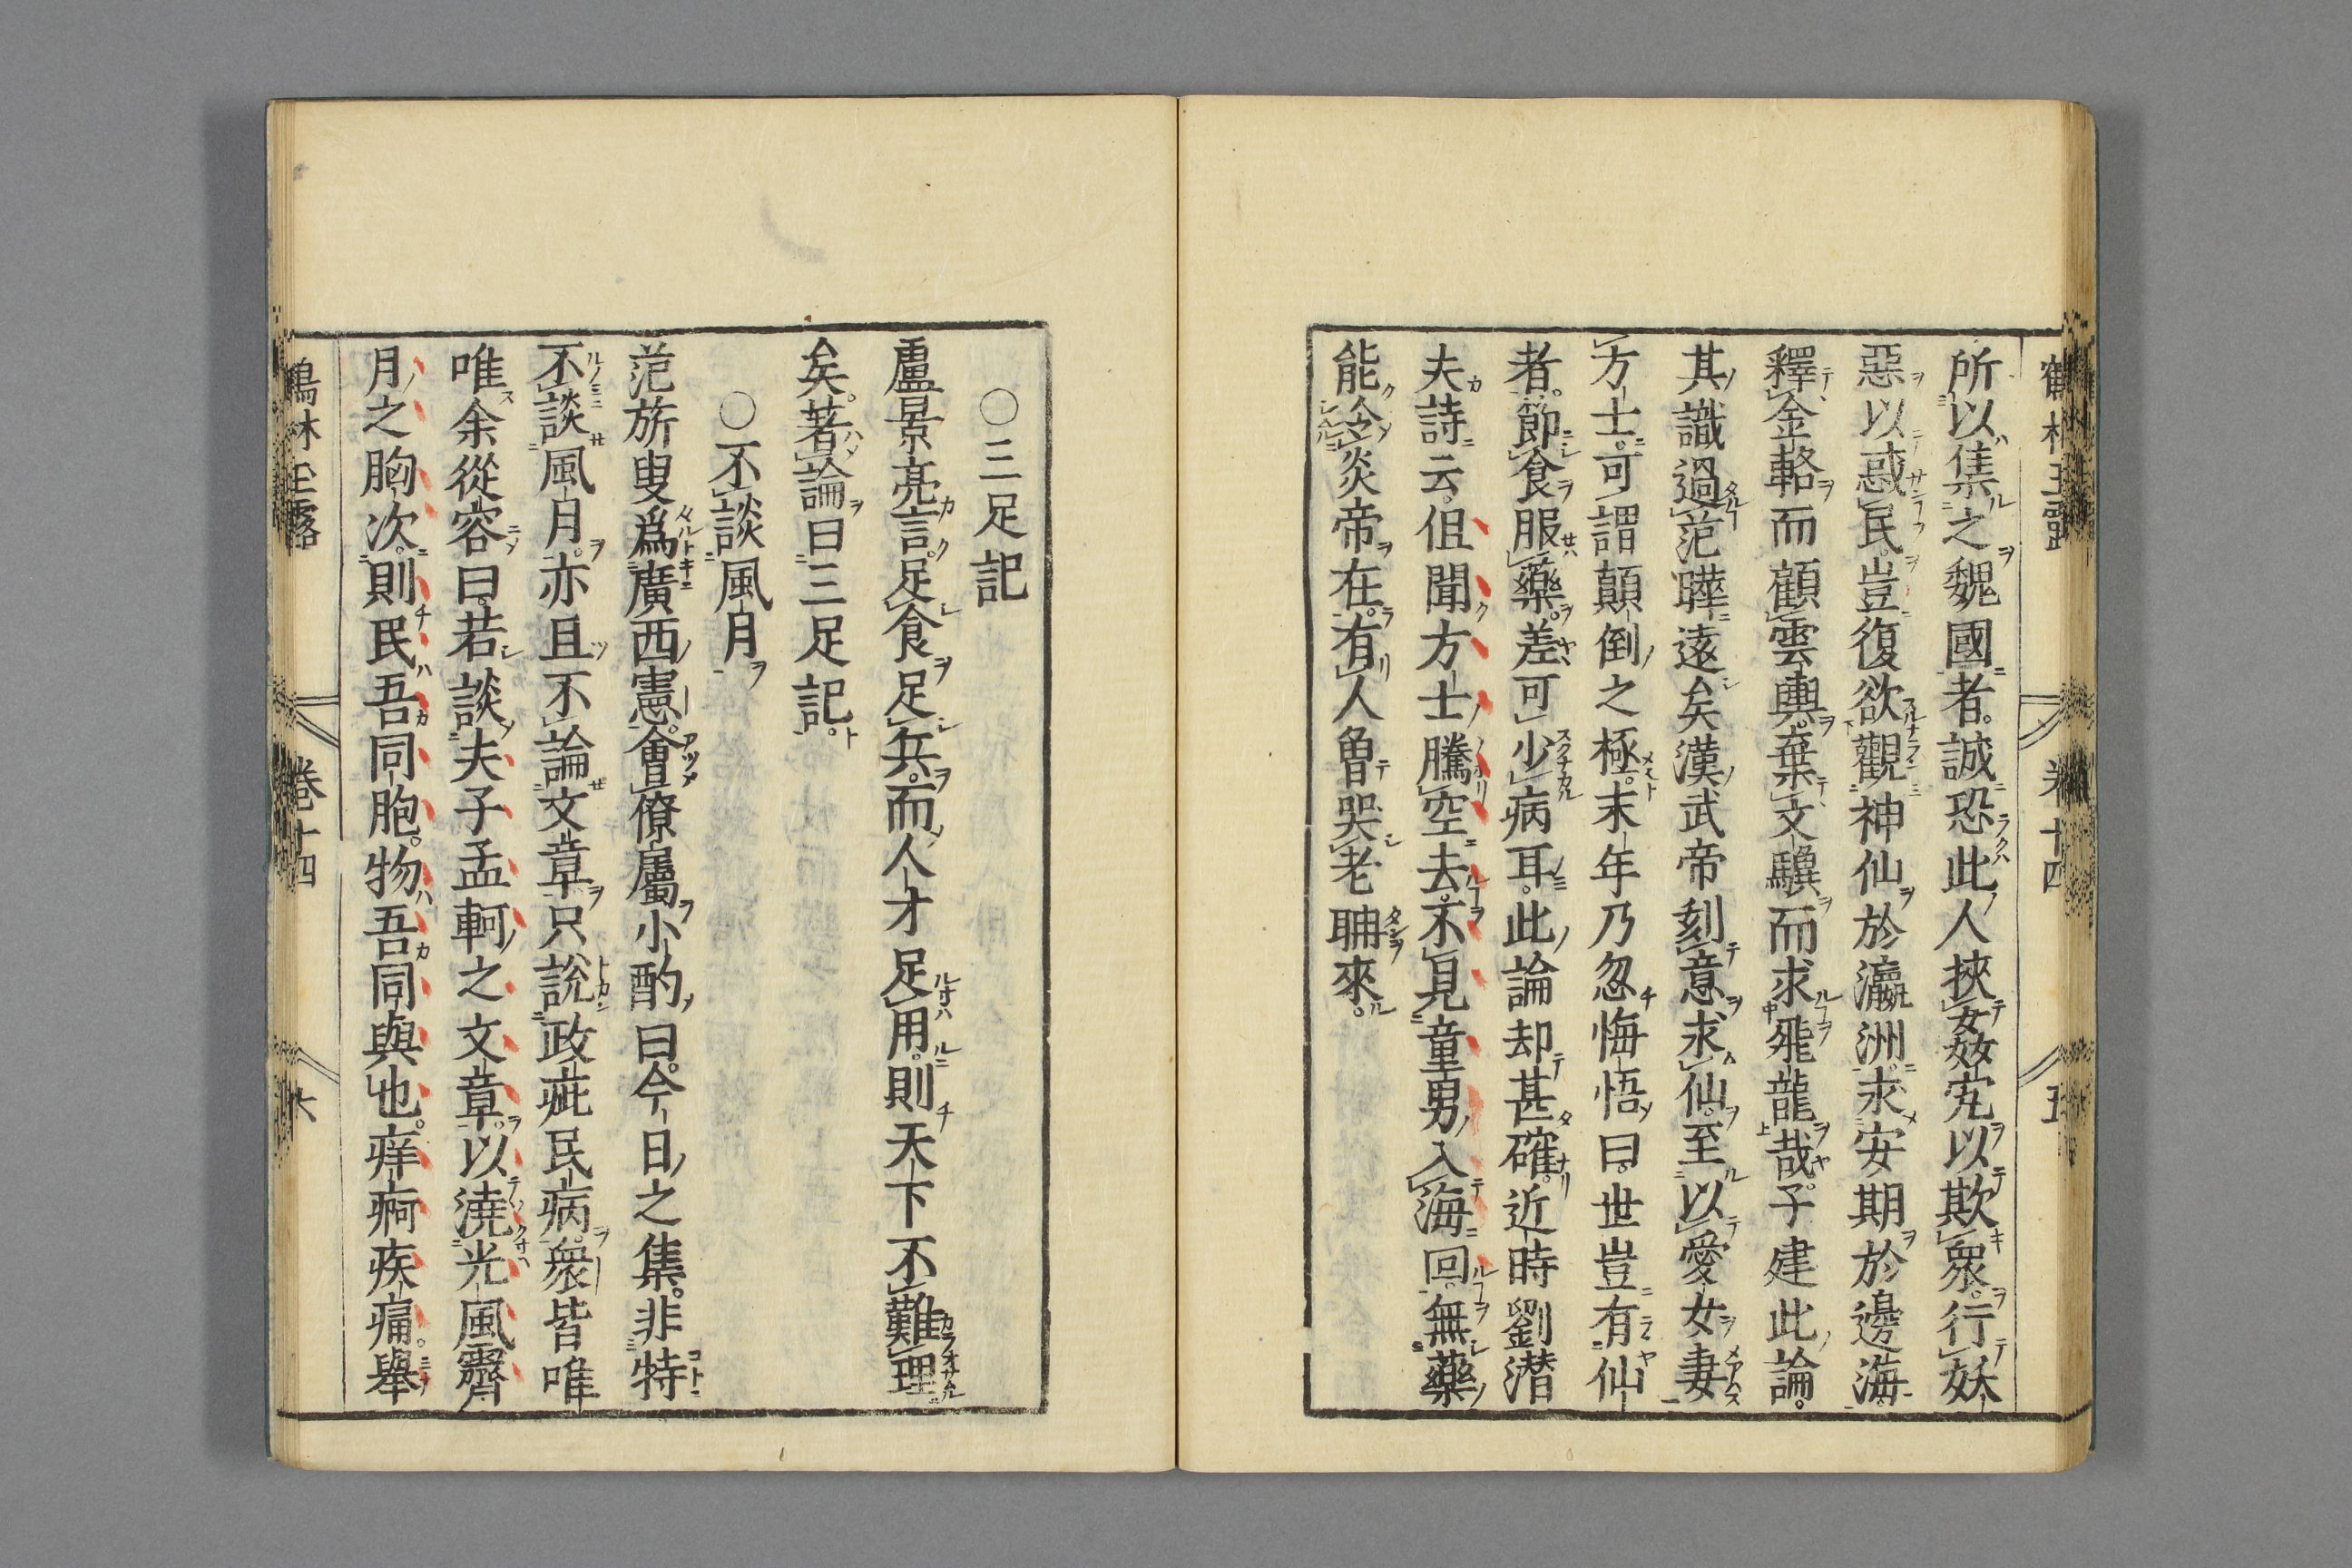 所以集之魏國者。誠恐此人挾姦宄以欺衆。行妖
惡以惑民。豈復欲觀神仙於瀛洲。求安期於邊海。
釋金輅而顧雲輿。棄文驥而求飛龍哉。子建此論。
其識過范曄遠矣漢武帝刻意求仙。至以愛女妻
方士。可謂顛倒之極。末年乃忽悔悟曰。世豈有仙
者。節食服藥。差可少病耳。此論却甚確。近時劉潜
夫詩云。但聞方士騰空去。不見童男入海回。無藥
能令炎帝在。有人魯哭老聃來。
鶴林玉露 卷十四 五
〇三足記
盧景亮言。足食足兵。而人才足用。則天下不難理
矣。著論曰三足記。
〇不談風月
范旂叟爲廣西憲。會僚屬小酌曰。今日之集。非特
不談風月。亦且不論文章。只說政疵民病。衆皆唯
唯余從容曰。若談夫子孟軻之文章。以澆光風霽
月之胸次。則民吾同胞。物吾同與也。痒痾疾痛。舉
鶴林玉露 卷十四 六